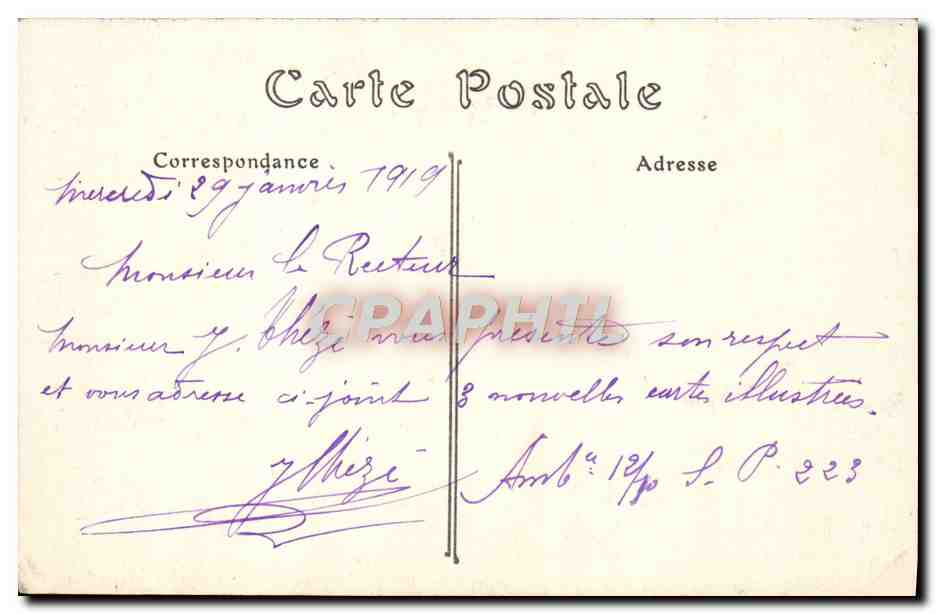 Carte Postale
Correspondance
Adresse
Mercredi 29 janvier 1919
Monsieur le Recteur
Monsieur J. Thézé vous présente son respect
et vous adresse ci-joint 3 nouvelles cartes illustrées.
JThézé
Amb^ce 12/10 S. P. 223
CPAPHIL